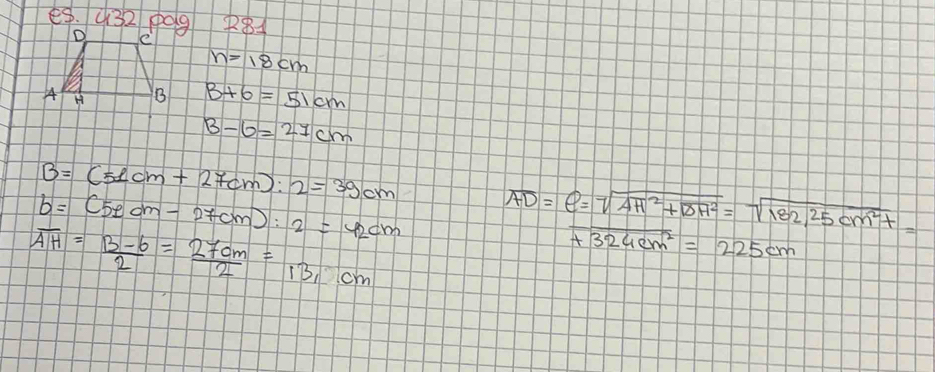 es. 432 pag 281
D C
A H B
h=18cm
B+b = 51cm
B-b = 27cm
B = (51cm + 27cm): 2 = 39cm
b = (51cm - 27cm): 2 = 12cm
AH = B-b/2 = 27cm/2 = 13, cm
AD = l = √AH²+DH² = √182,25cm²+ =
+324cm² = 225cm